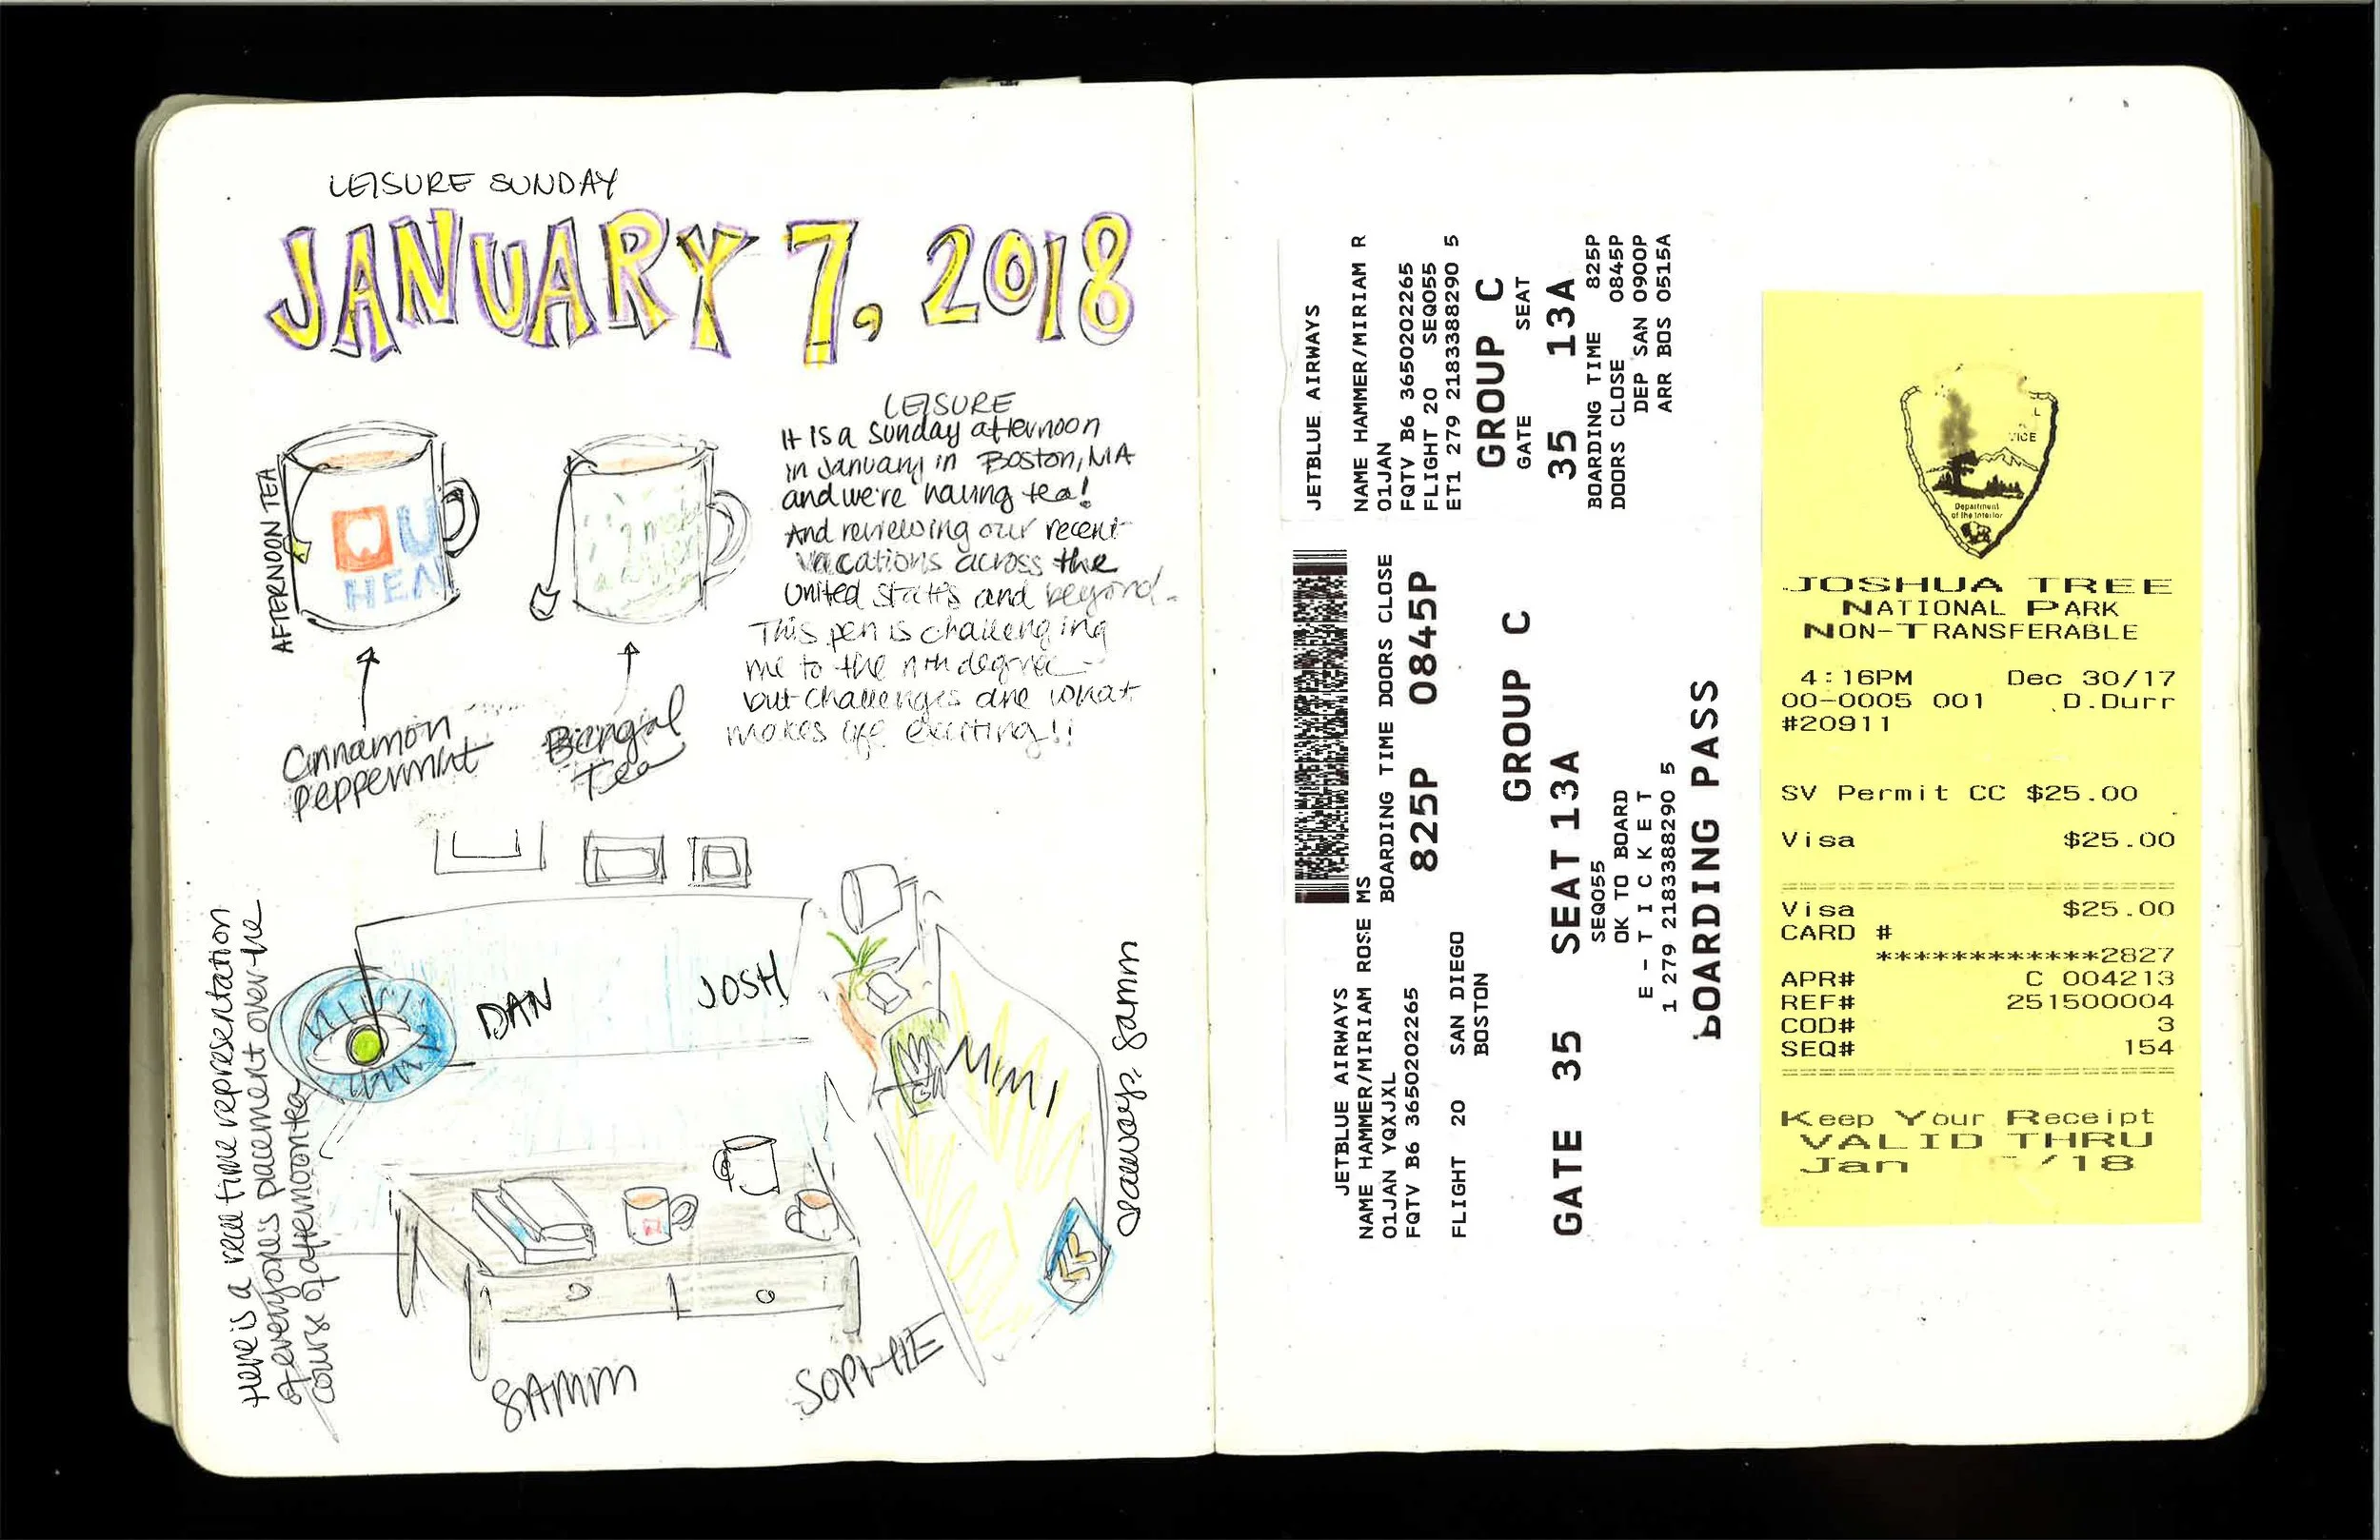 LEISURE SUNDAY
JANUARY 7, 2018
AFTERNOON TEA
OU
HEA
Cinnamon
Peppermint
Bengal
Tea
LEISURE
It is a Sunday afternoon
in January in Boston, MA
and we're having tea!
And reviewing our recent
vacations across the
United States and beyond.
This pen is challenging
me to the nth degree
but challenges are what
makes life exciting!!
Here is a real time representation
of everyone's placement over the
course of afternoon tea
DAN
JOSH
MIMI
SAMM
SOPHIE
drawings: Samm
JETBLUE AIRWAYS
NAME HAMMER/MIRIAM R
01JAN
FQTV B6 3650202265
FLIGHT 20 SEQ055
ET1 279 2183388290 5
GROUP C
GATE SEAT
35 13A
BOARDING TIME 825P
DOORS CLOSE 0845P
DEP SAN 0900P
ARR BOS 0515A
JETBLUE AIRWAYS
NAME HAMMER/MIRIAM ROSE MS
01JAN YQXJXL
BOARDING TIME DOORS CLOSE
FQTV B6 3650202265
825P 0845P
FLIGHT 20 SAN DIEGO
BOSTON
GROUP C
GATE 35 SEAT 13A
SEQ055
OK TO BOARD
E - T I C K E T
1 279 2183388290 5
BOARDING PASS
L
VICE
Department
of the Interior
JOSHUA TREE
NATIONAL PARK
NON-TRANSFERABLE
4:16PM Dec 30/17
00-0005 001 D.Durr
#20911
SV Permit CC $25.00
Visa $25.00
Visa $25.00
CARD #
************2827
APR# C 004213
REF# 251500004
COD# 3
SEQ# 154
Keep Your Receipt
VALID THRU
Jan /18